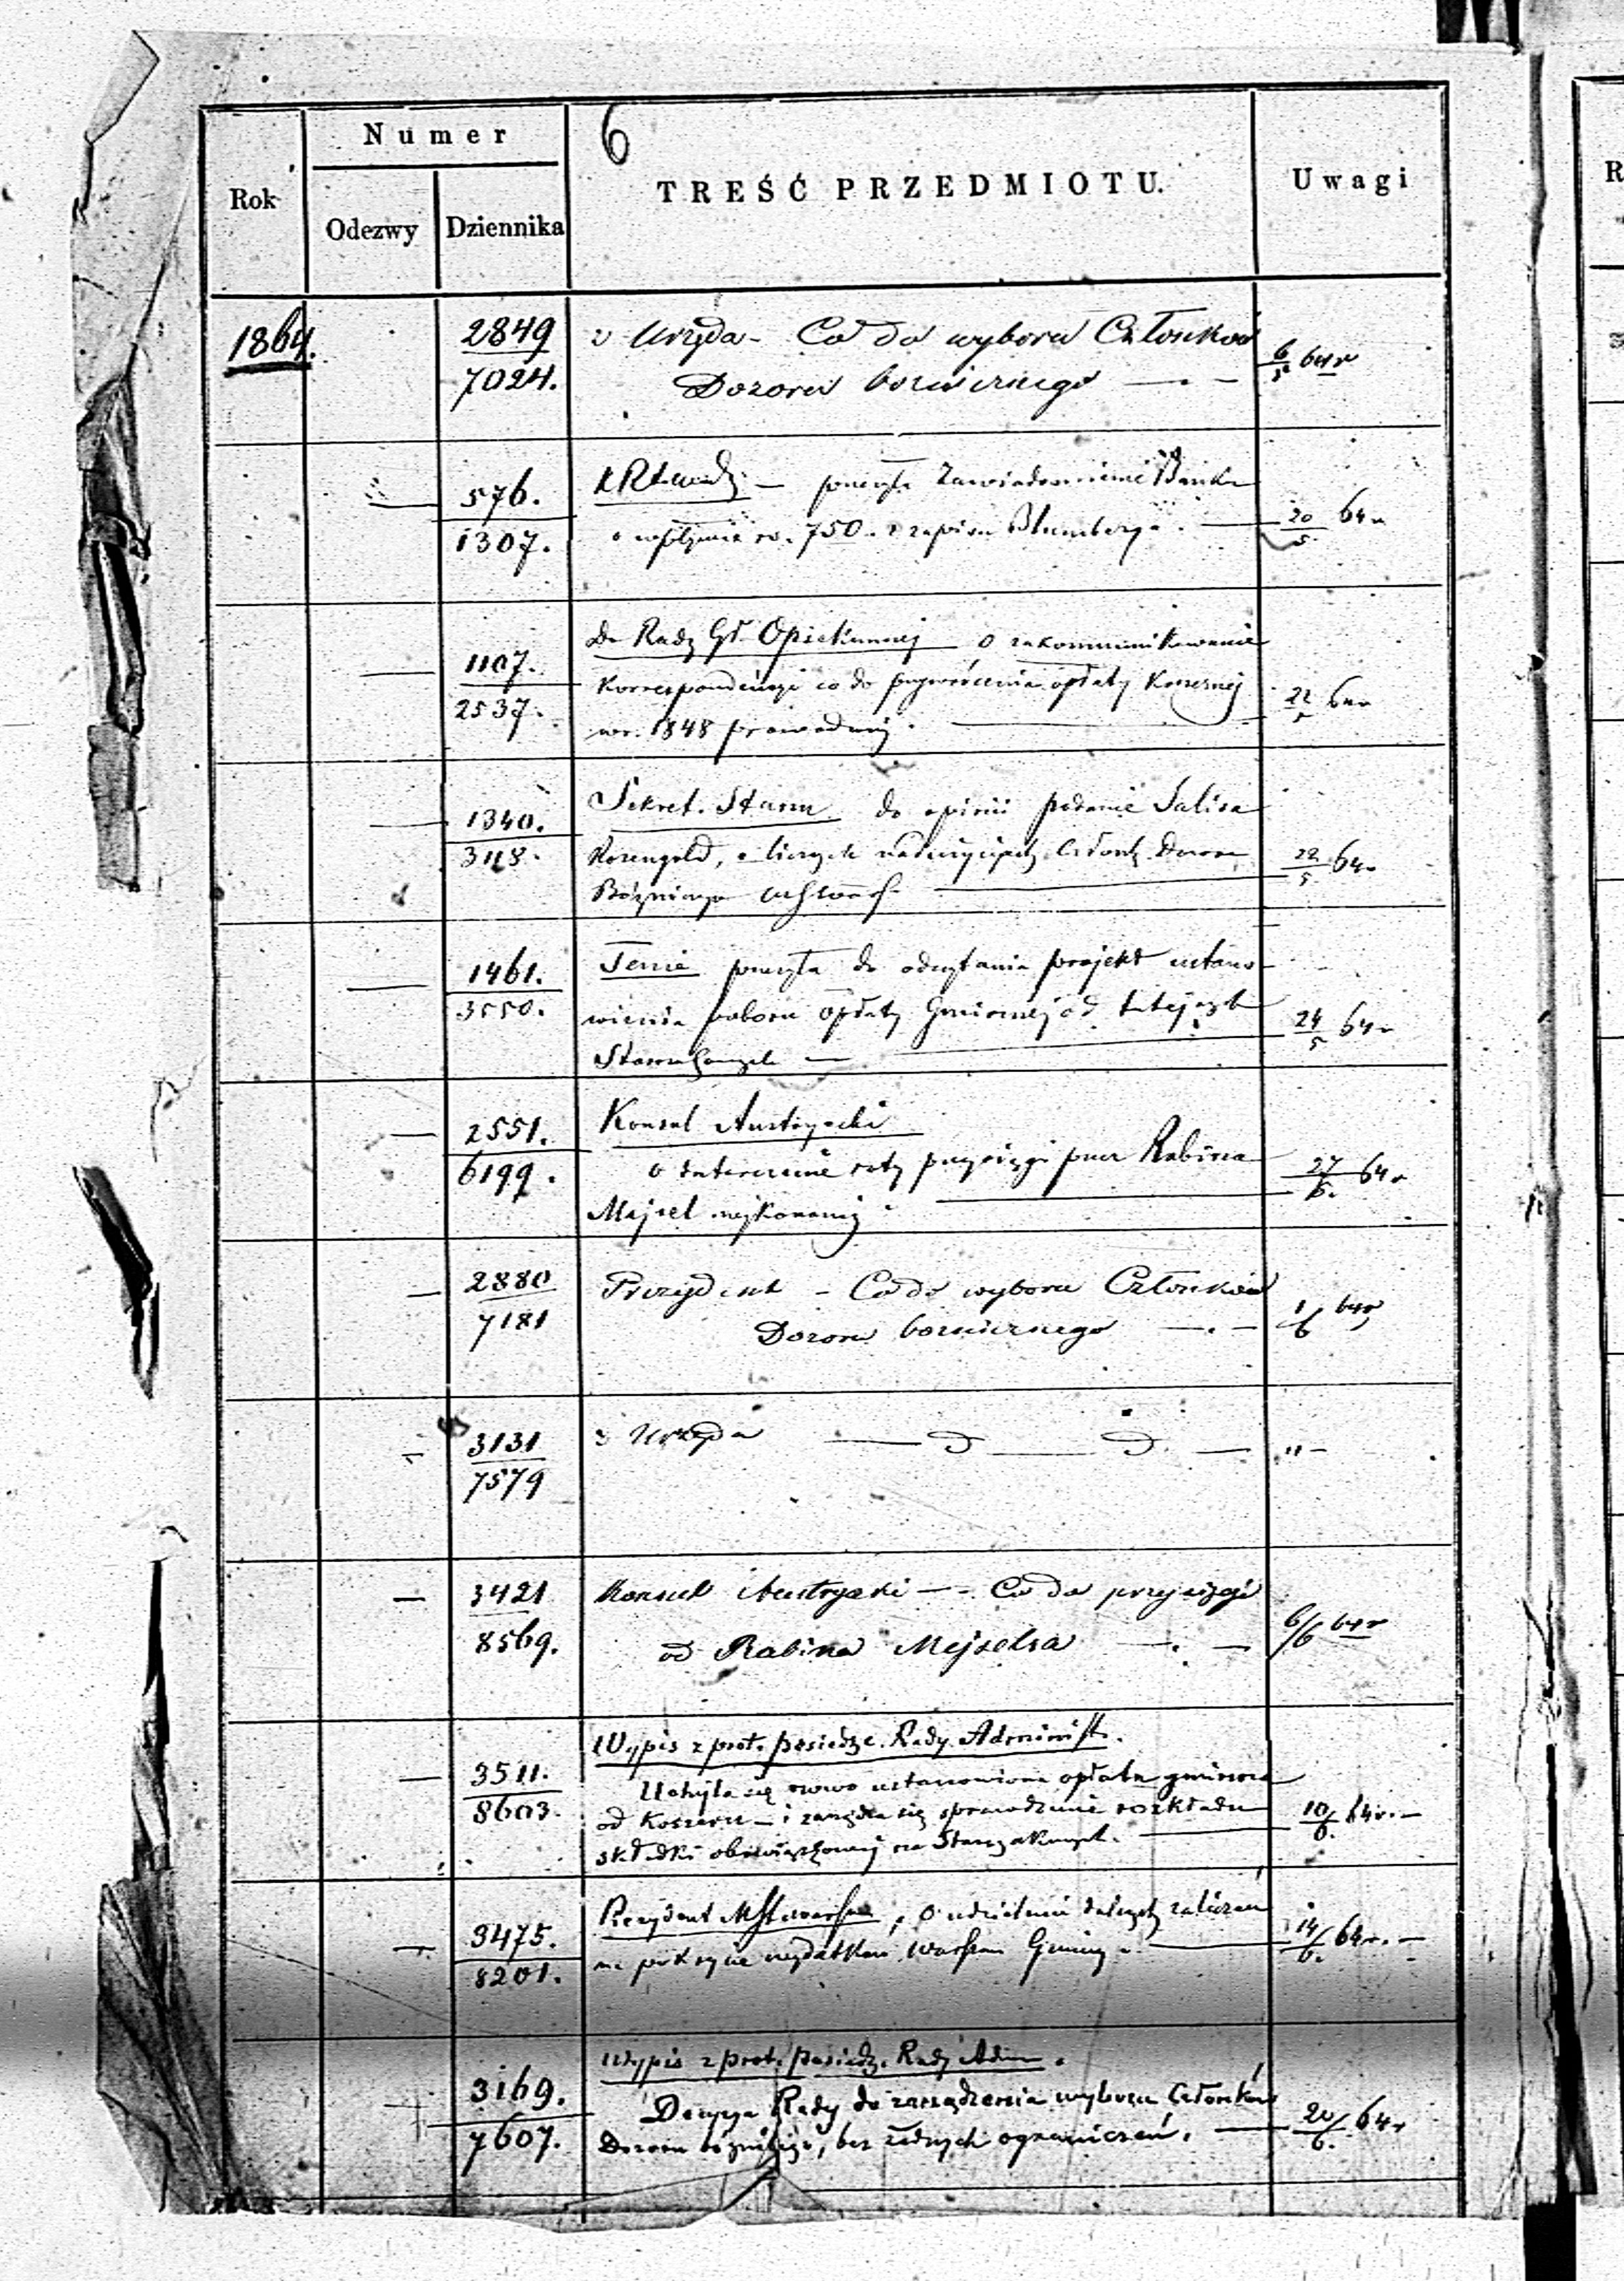 6
Numer
Rok
Odezwy
Dziennika
TREŚĆ PRZEDMIOTU.
Uwagi
1864.
2849
7024.
z Urzędu - Co do wyboru Członków
Dozoru bożniczego
6/5 64 r
576.
1307.
posyła Zawiadomienie Banku
o wpłynie rs. 750. z zapisu Blumberga.
20/5 64 r
1107.
2537.
Do Rady Gł. Opiekuńczej o zakommunikowanie
Korrespondencji co do przywrócenia opłaty Koszernej
w r. 1848 prowadzonej.
22/5 64 r
1340.
3118.
Sekret. Stanu do opinii podanie Salisa
Rosengold, o licznych nadużyciach Członk. Dozoru
Bóżniczego
22/5 64 r
1461.
3550.
Tenże posyła do odczytania projekt ustano-
wienia poboru opłaty Gminnej od tutejszych
Starozakonnych
24/5 64 r
2551.
6199.
Konsul Austryacki
o roty przysięgi przez Rabina
Majzel wykonanej
27/5. 64 r
2880
7181
Prezydent - Co do wyboru Członków
Dozoru bożniczego
1/6 64 r
3131
7579
z Urzędu — D — D. —
" -
3421
8569.
Konsul Austryacki — Co do przysięgi
od Rabina Mejzelsa
6/6 64 r
3511.
8603.
Wypis z prot. posiedze. Rady Administ.
Uchyla się nowo ustanowiona opłata gminna
od Koszeru — i zarządza się sprawdzenie rozkładu
składki obowiązkowej na Starozakonnych.
10/6. 64 r. —
3475.
8201.
Prezydent M. St. Warszawy, o udzieleniu dalszych zaliczeń
na pokrycie wydatków Warszaw. Gminy
14/6. 64 r. —
3169.
7607.
Wypis z prot. posiedz. Rady Adm.
Decyzya Rady do zarządzenia wyboru Członków
Dozoru bóżniczego, bez żadnych ograniczeń.
20/6. 64 r